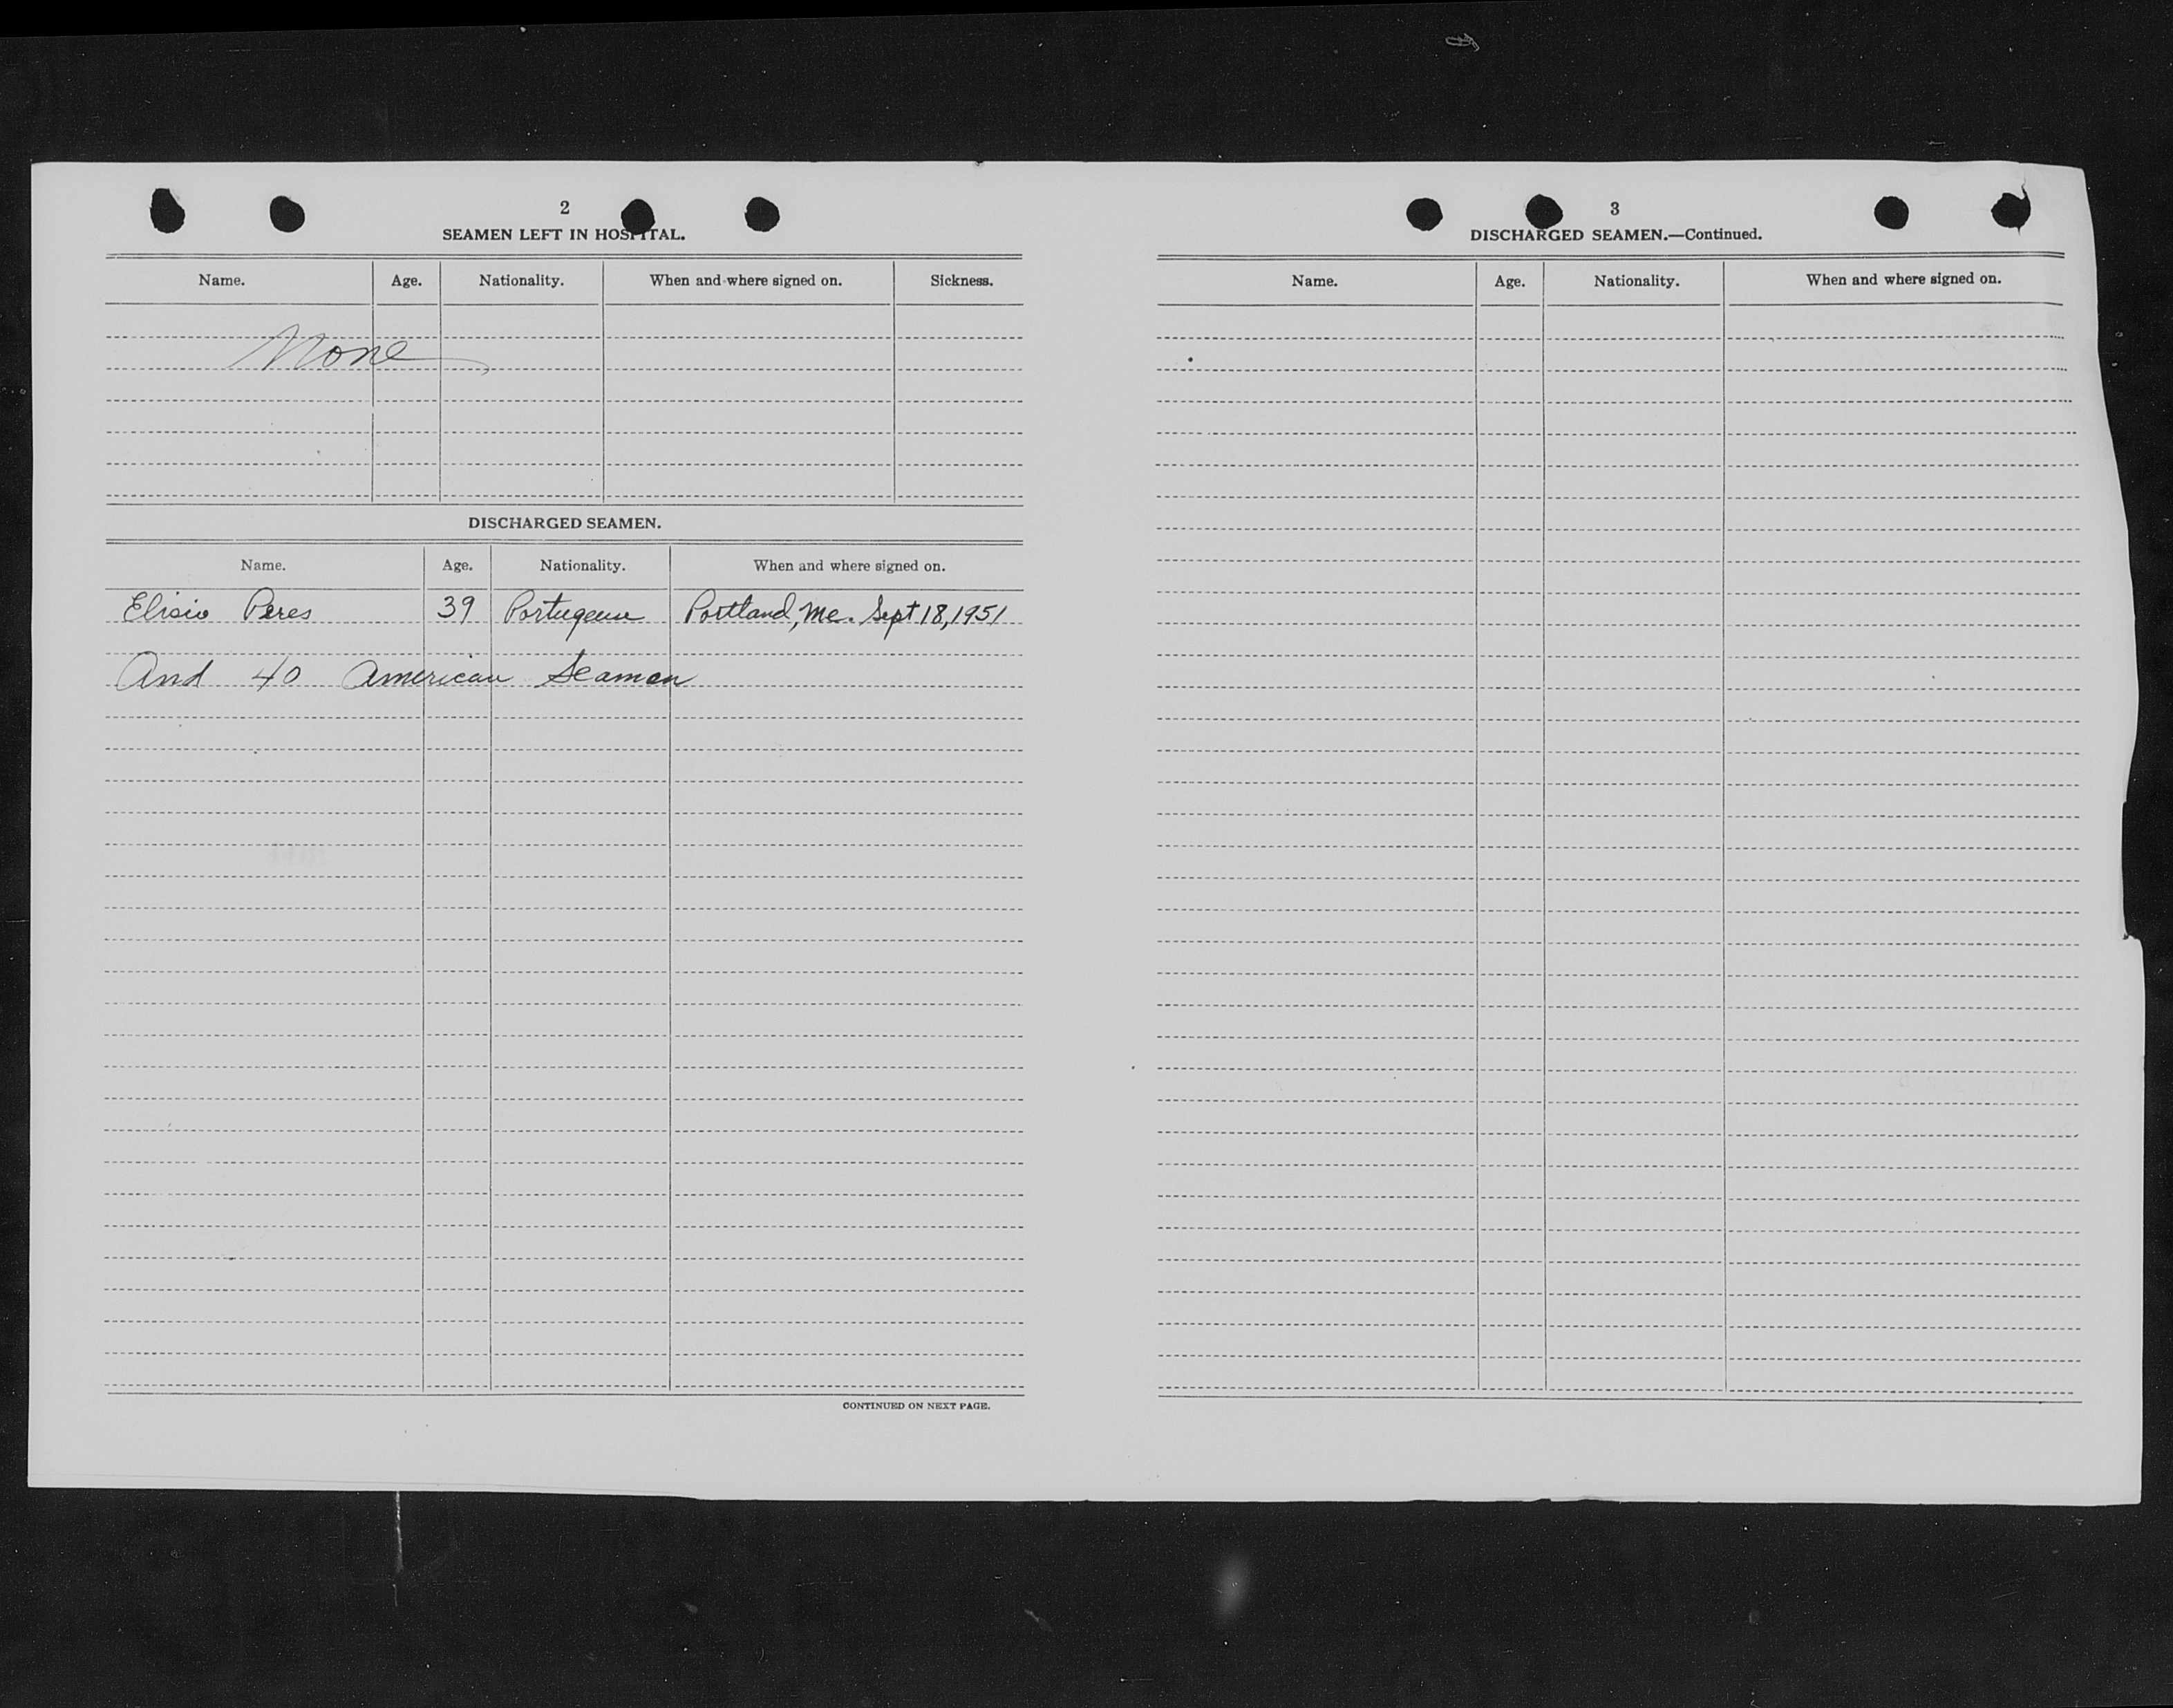 2
SEAMEN LEFT IN HOSPITAL.
Name. Age. Nationality. When and where signed on. Sickness.
None
DISCHARGED SEAMEN.
Name. Age. Nationality. When and where signed on.
Elisio Peres 39 Portugeuse Portland, Me. Sept 18, 1951
And 40 American Seamen
CONTINUED ON NEXT PAGE.
3
DISCHARGED SEAMEN.—Continued.
Name. Age. Nationality. When and where signed on.